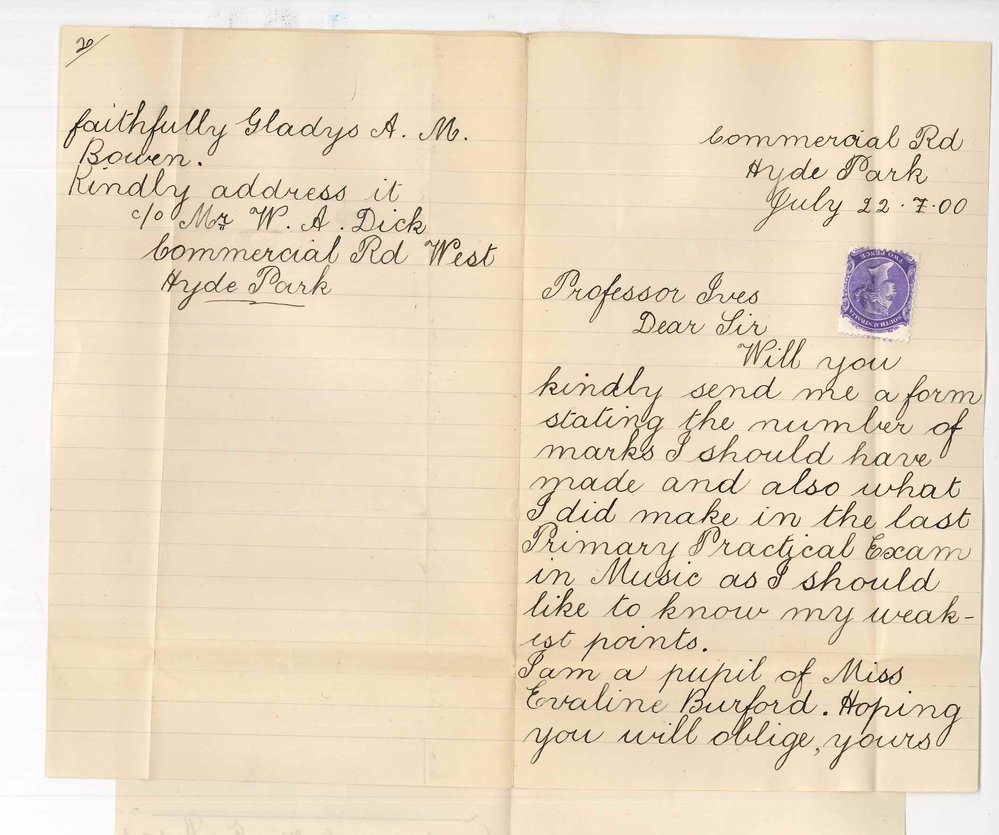 Commercial Rd
Hyde Park
July 22.7.00
Professor Ives
Dear Sir
Will you
kindly send me a form
stating the number of
marks I should have
made and also what
I did make in the last
Primary Practical Exam
in Music as I should
like to know my weak-
ist points.
I am a pupil of Miss
Evaline Burford. Hoping
you will oblige, yours
faithfully Gladys A. M.
Bowen.
Kindly address it
c/o Mr W. A. Dick
Commercial Rd West
Hyde Park
SOUTH AUSTRALIA
TWO PENCE